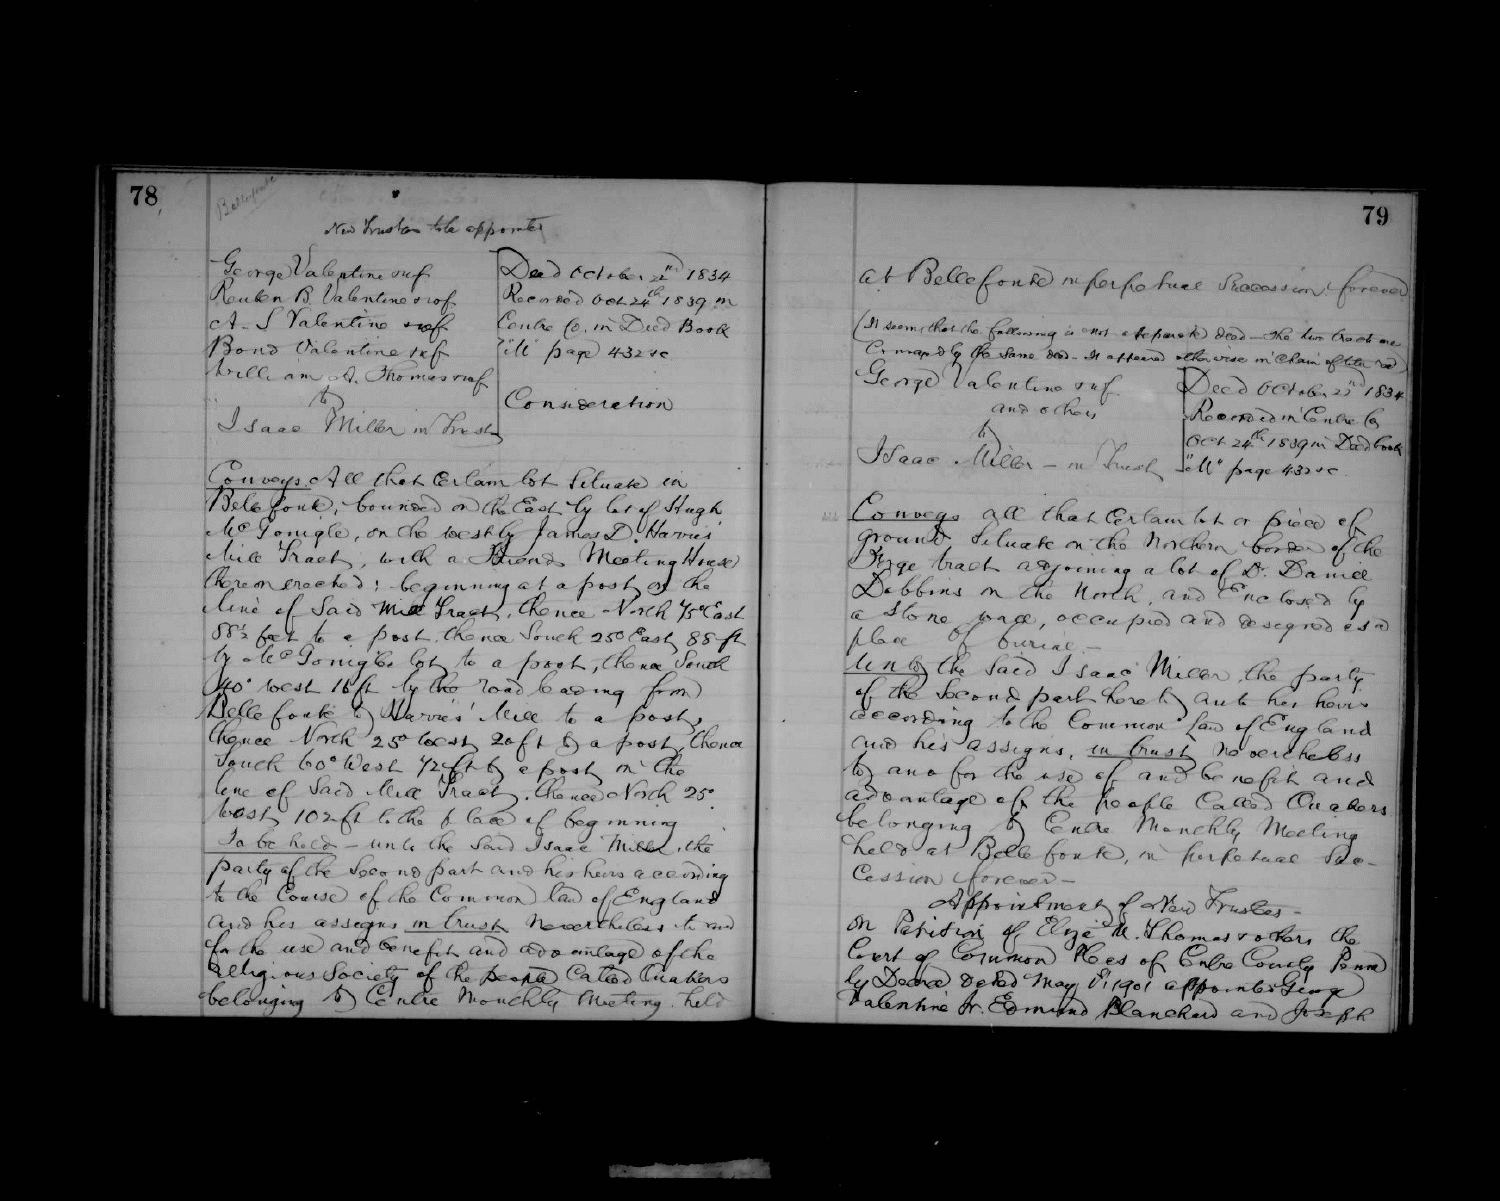 78
Bellefonte
New Trustees to be appointed
George Valentine & wf.
Reuben B. Valentine & wf.
A. S Valentine & wf.
Bond Valentine & wf
William A. Thomas & wf
to
Isaac Miller in Trust
Deed October 22nd 1834
Recorded Oct 24th 1839 in
Centre Co. in Deed Book
"M" page 432 &c
Consideration
Conveys. All that Certain lot Situate in
Bellefonte, bounded on the East by lot of Hugh
McGonigle, on the west by James D. Harris'
Mill Tract, with a Friends Meeting House
thereon erected: beginning at a post on the
line of Said Mill Tract, thence North 75° East
88½ feet to a post, thence South 25° East 88 ft
by McGonigles lot to a post, thence South
40° west 16 ft by the road leading from
Bellefonte to Harris' Mill to a post,
thence North 25° West 20 ft to a post, thence
South 60° West 72 ft to a post on the
line of Said Mill Tract, thence North 25°
West 102 ft to the place of beginning
To be held - unto the Said Isaac Miller, the
party of the Second part and his heirs according
to the Course of the Common law of England
and his assigns in trust Nevertheless to and
for the use and benefit and advantage of the
religious Society of the People Called Quakers
belonging to Centre Monthly Meeting held
79
at Bellefonte in perpetual Succession forever
(It seems that the following is not a Separate deed - The two tracts are
Conveyed by the Same deed - It appeared otherwise in Chain of title
George Valentine & wf.
and others
to
Isaac Miller - in Trust
Deed October 22nd 1834
Recorded in Centre Co
Oct 24th 1839 in Deed book
"M" page 432 &c.
Conveys all that Certain lot or piece of
ground Situate on the Northern border of the
Forge tract adjoining a lot of Dr. Daniel
Dobbins on the North, and Enclosed by
a Stone wall, occupied and designed as a
place of burial.-
Unto the Said Isaac Miller, the party
of the Second part hereto and his heirs
according to the Common law of England
and his assigns, in trust Nevertheless
to and for the use of and benefit and
advantage of the People Called Quakers
belonging to Centre Monthly Meeting
held at Bellefonte, in perpetual Suc-
cession forever -
Appointment of New Trustees -
On Petition of Eliza M. Thomas & others the
Court of Common Pleas of Centre County Penna
by Decree dated May 1901 appointed George
Valentine Jr. Edmund Blanchard and Joseph